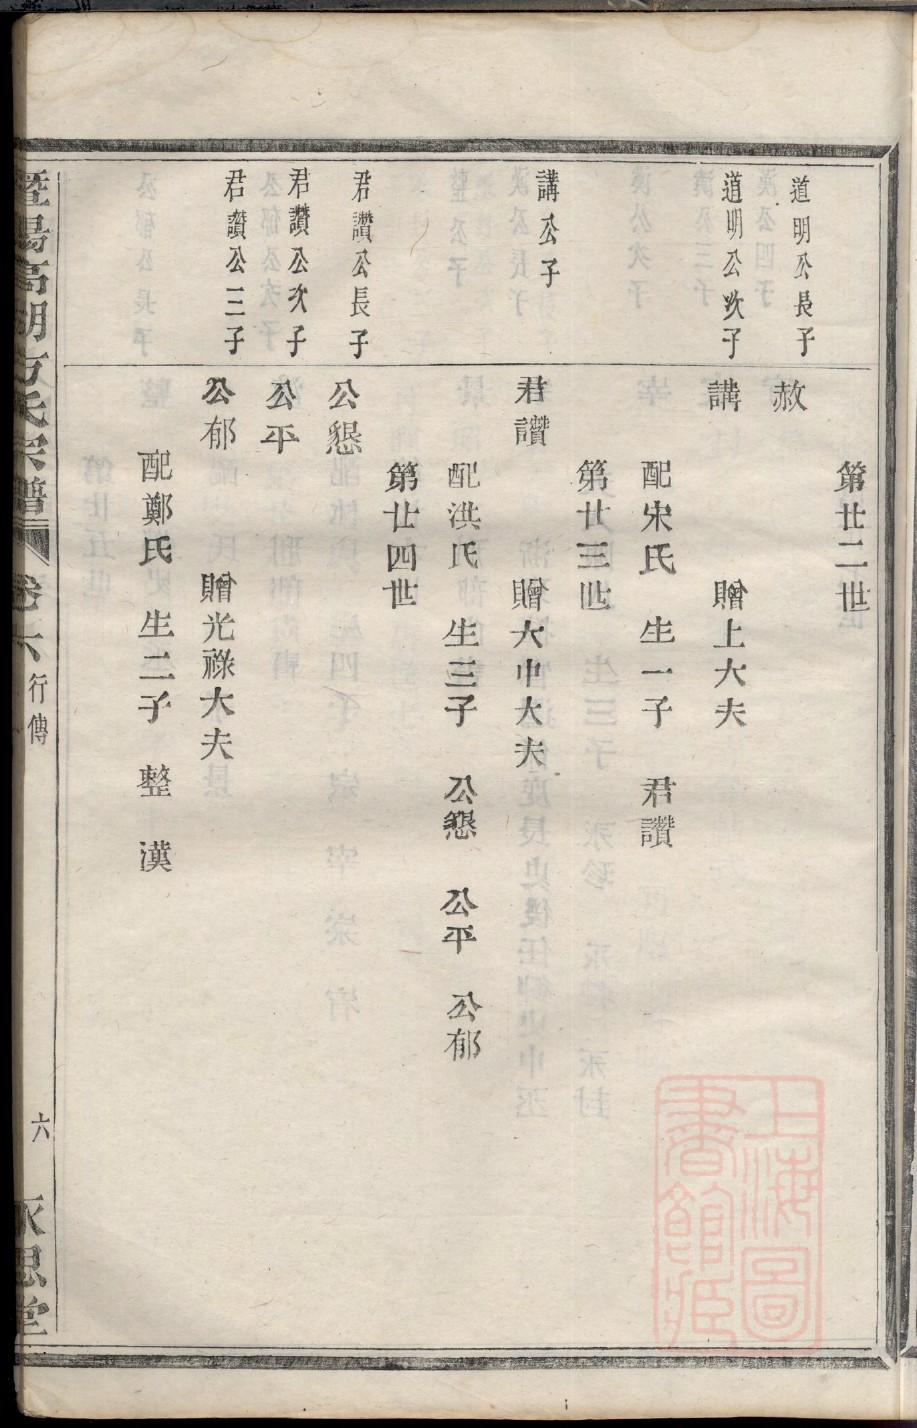 第廿二世
道明公長子
赦
道明公次子
講 贈上大夫
配宋氏 生一子 君讚
第廿三世
講公子
君讚 贈大中大夫
配洪氏 生三子 公懇 公平 公郁
第廿四世
君讚公長子
公懇
君讚公次子
公平
君讚公三子
公郁 贈光祿大夫
配鄭氏 生二子 整 漢
暨陽高湖方氏宗譜 卷六 行傳 六 永思堂
上海圖書館藏